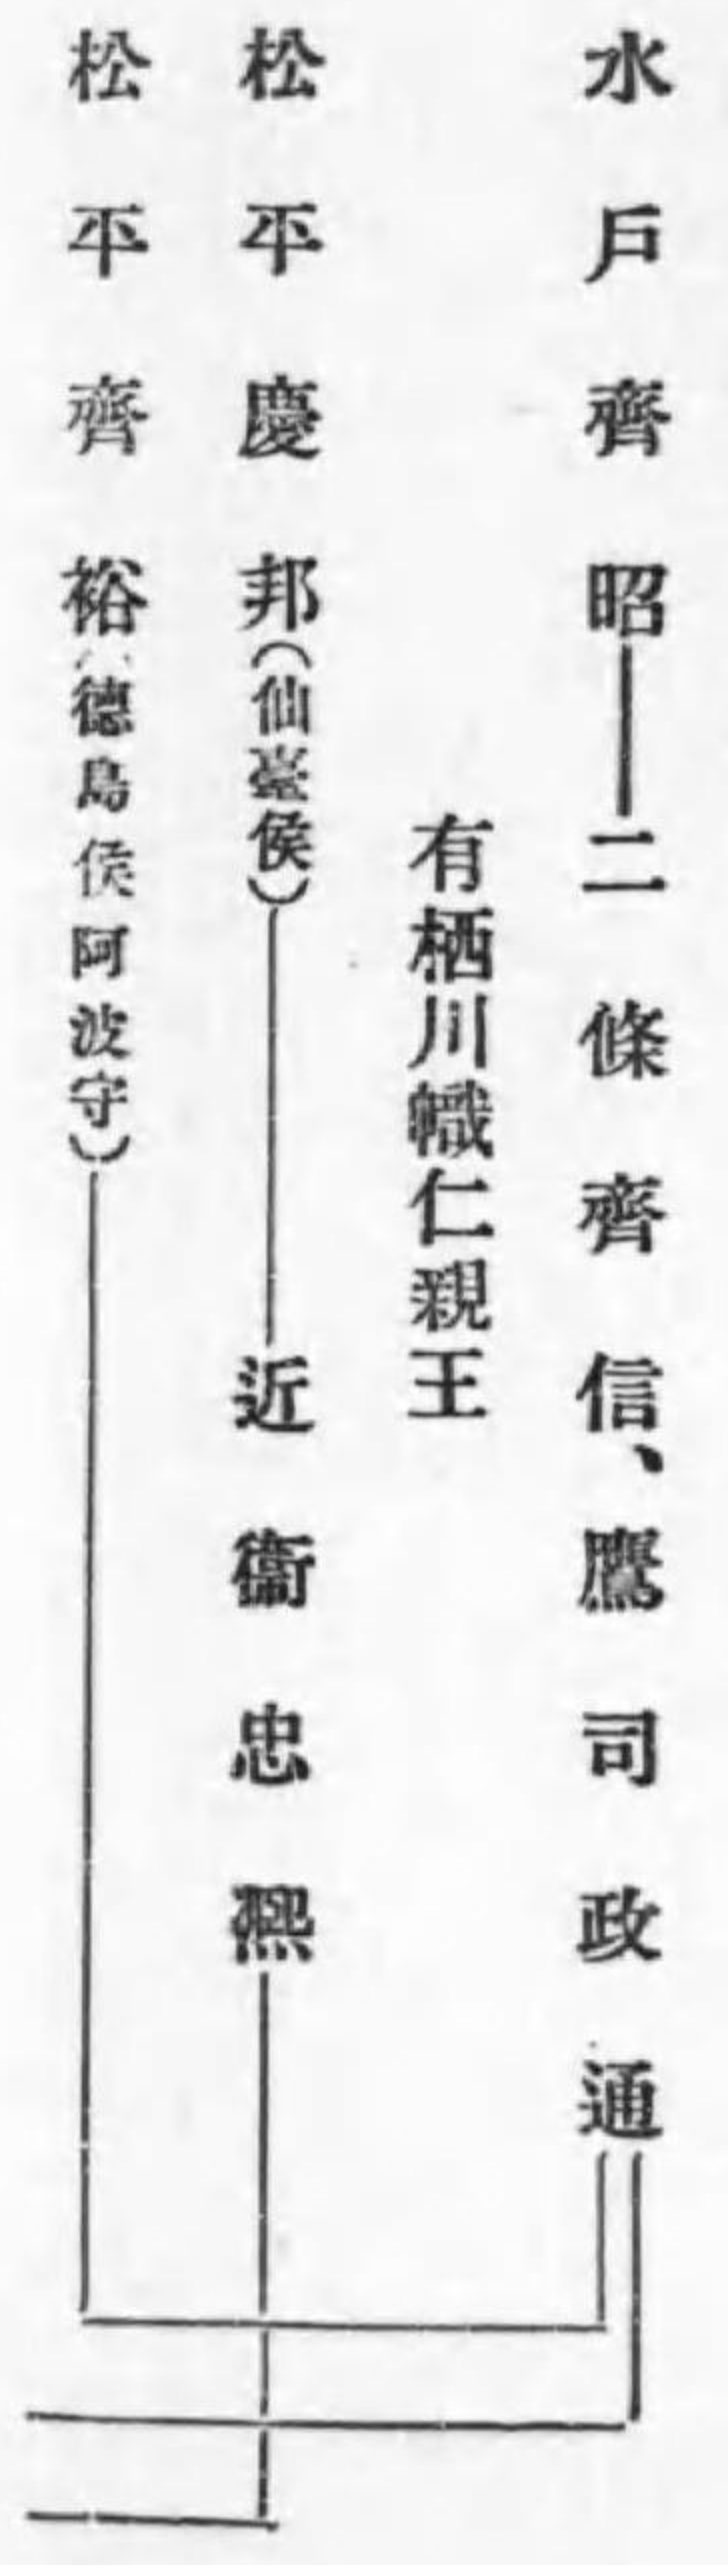 水戶齊昭
二條齊信、鷹司政通
有栖川幟仁親王
松平慶邦（仙臺侯）
近衞忠熈
松平齊裕（德島侯阿波守）